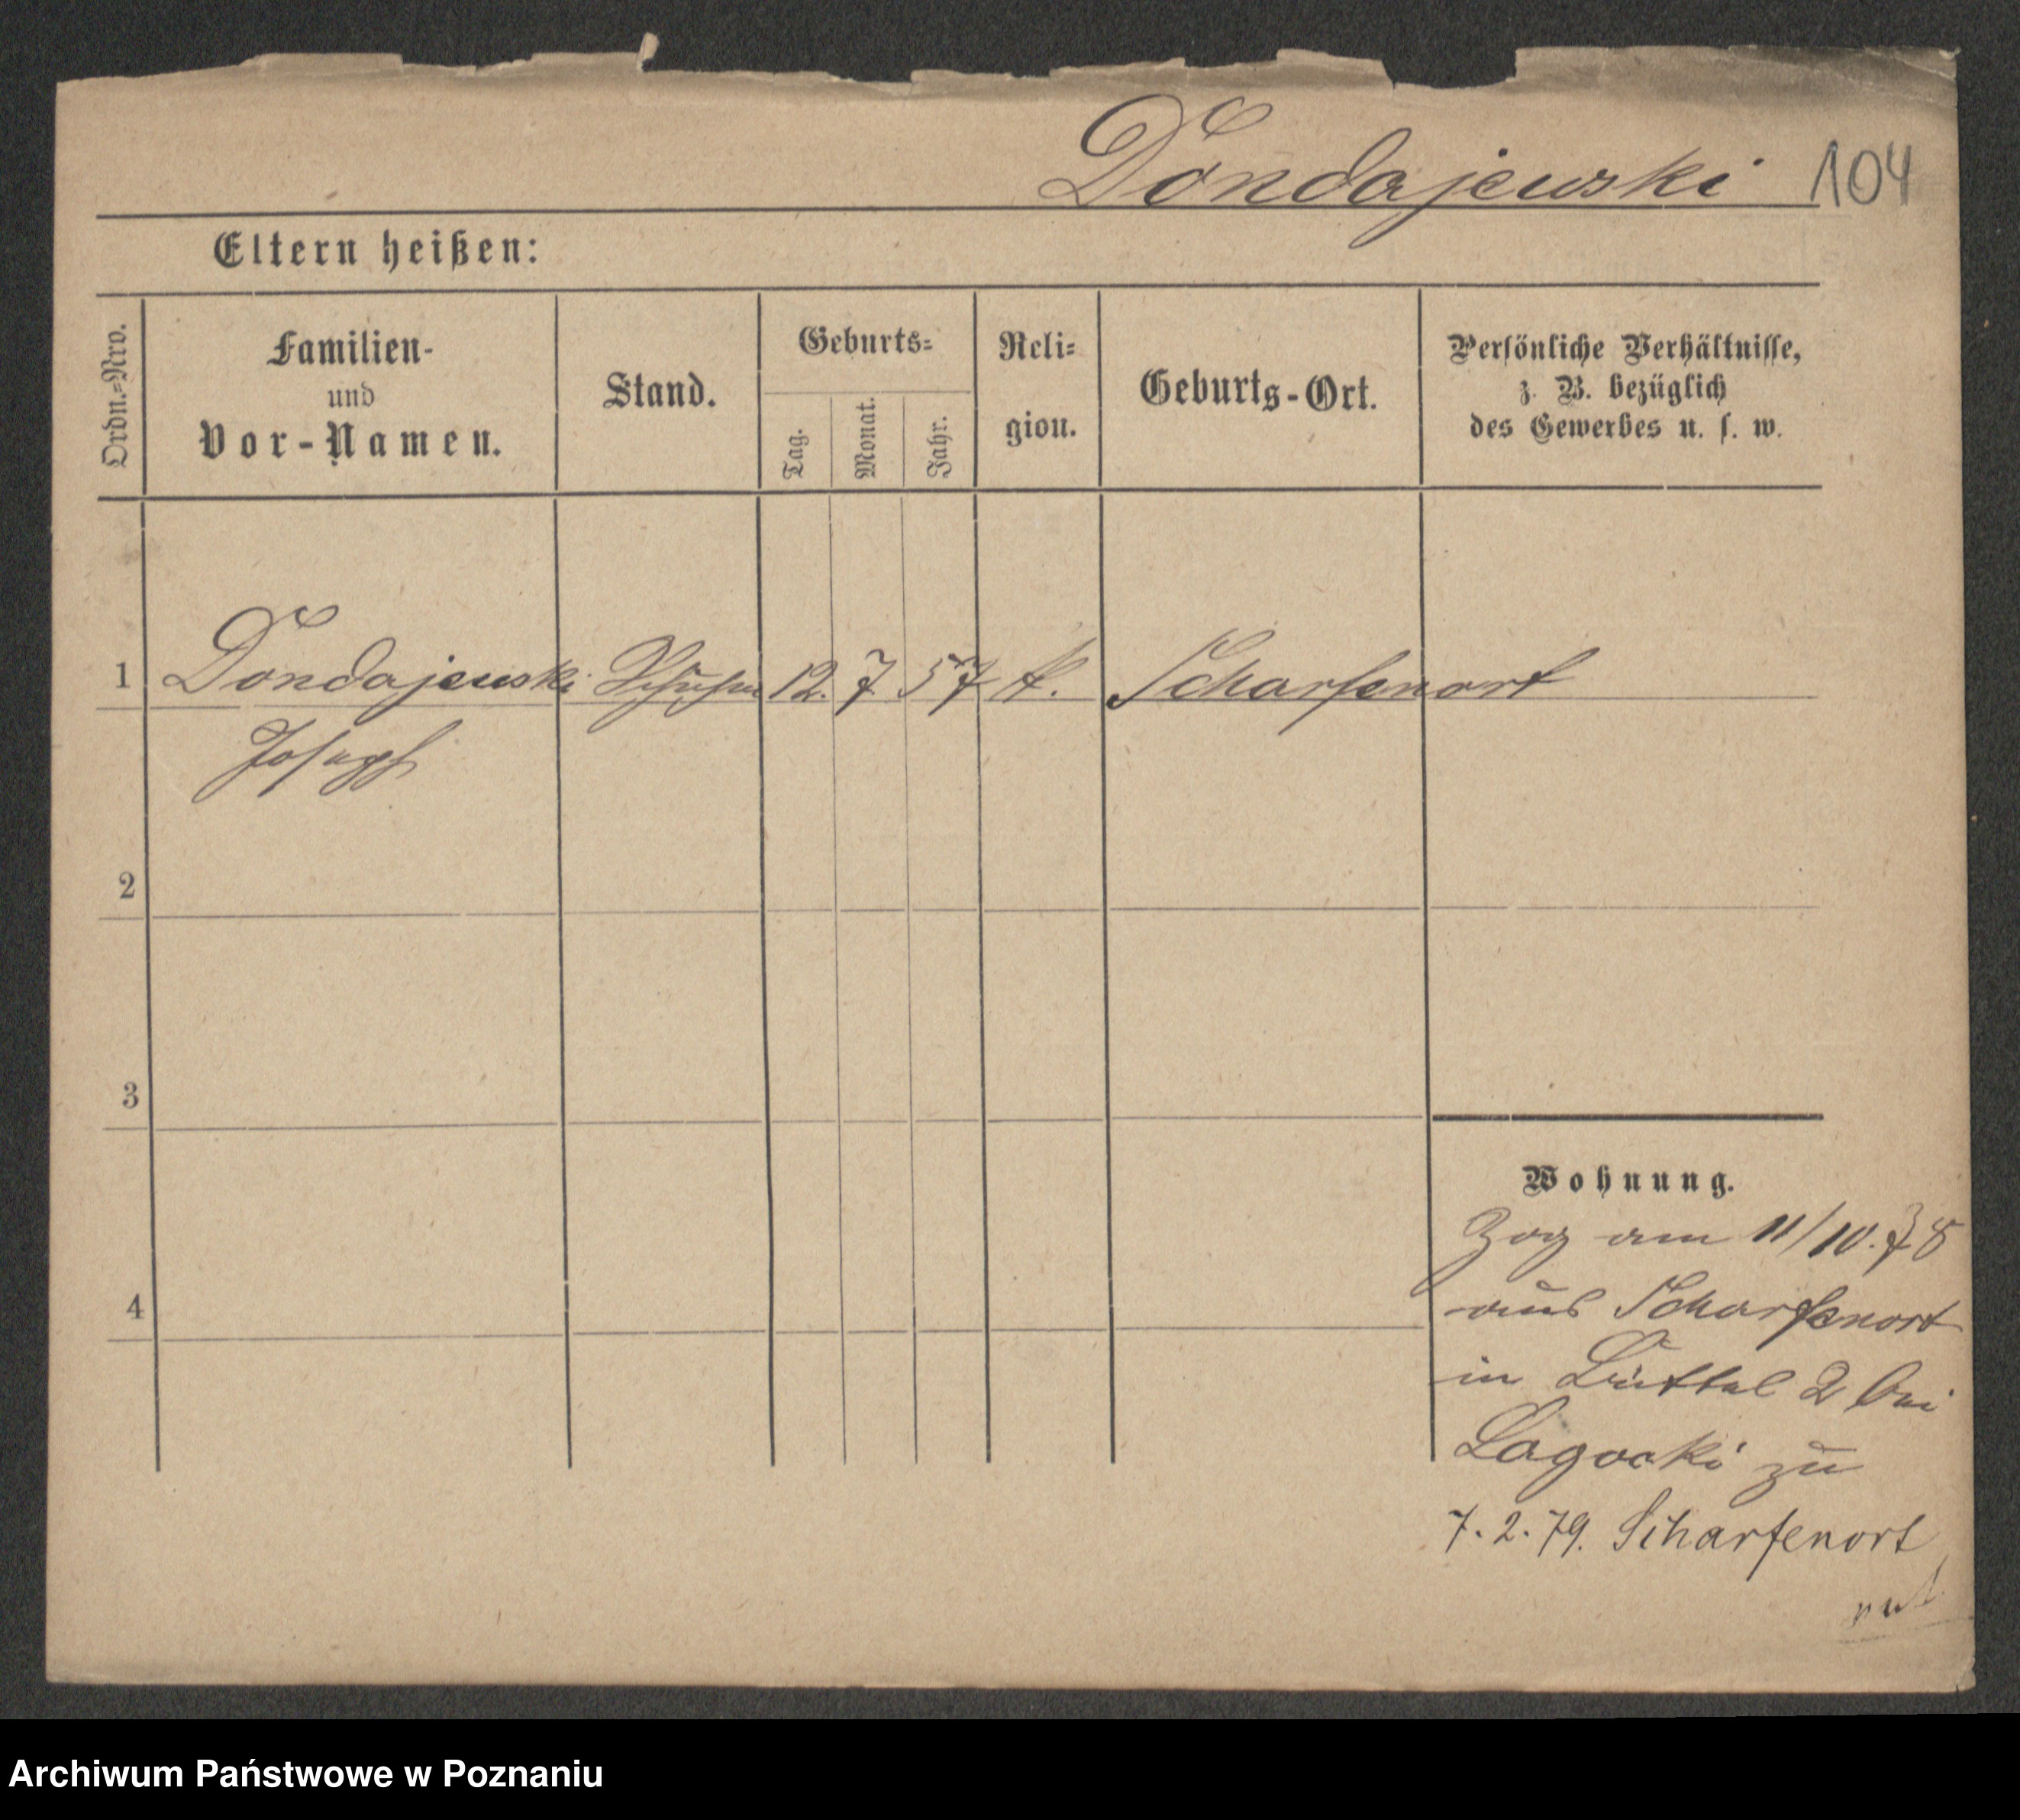 Dondajewski 104
Eltern heißen:
Ordn.-Nro.
Familien-
und
Vor-Namen.
Stand.
Geburts-
Tag.
Monat.
Jahr.
Reli-
gion.
Geburts-Ort.
Persönliche Verhältnisse,
z. B. bezüglich
des Gewerbes u. s. w.
1 Dondajewski 12. 7 57 k. Scharfenort
Joseph
2
3
4
Wohnung.
Zog am 11/10. 78
aus Scharfenort
in Büttel 2 bei
Lagocki zu
7.2.79. Scharfenort
Archiwum Państwowe w Poznaniu